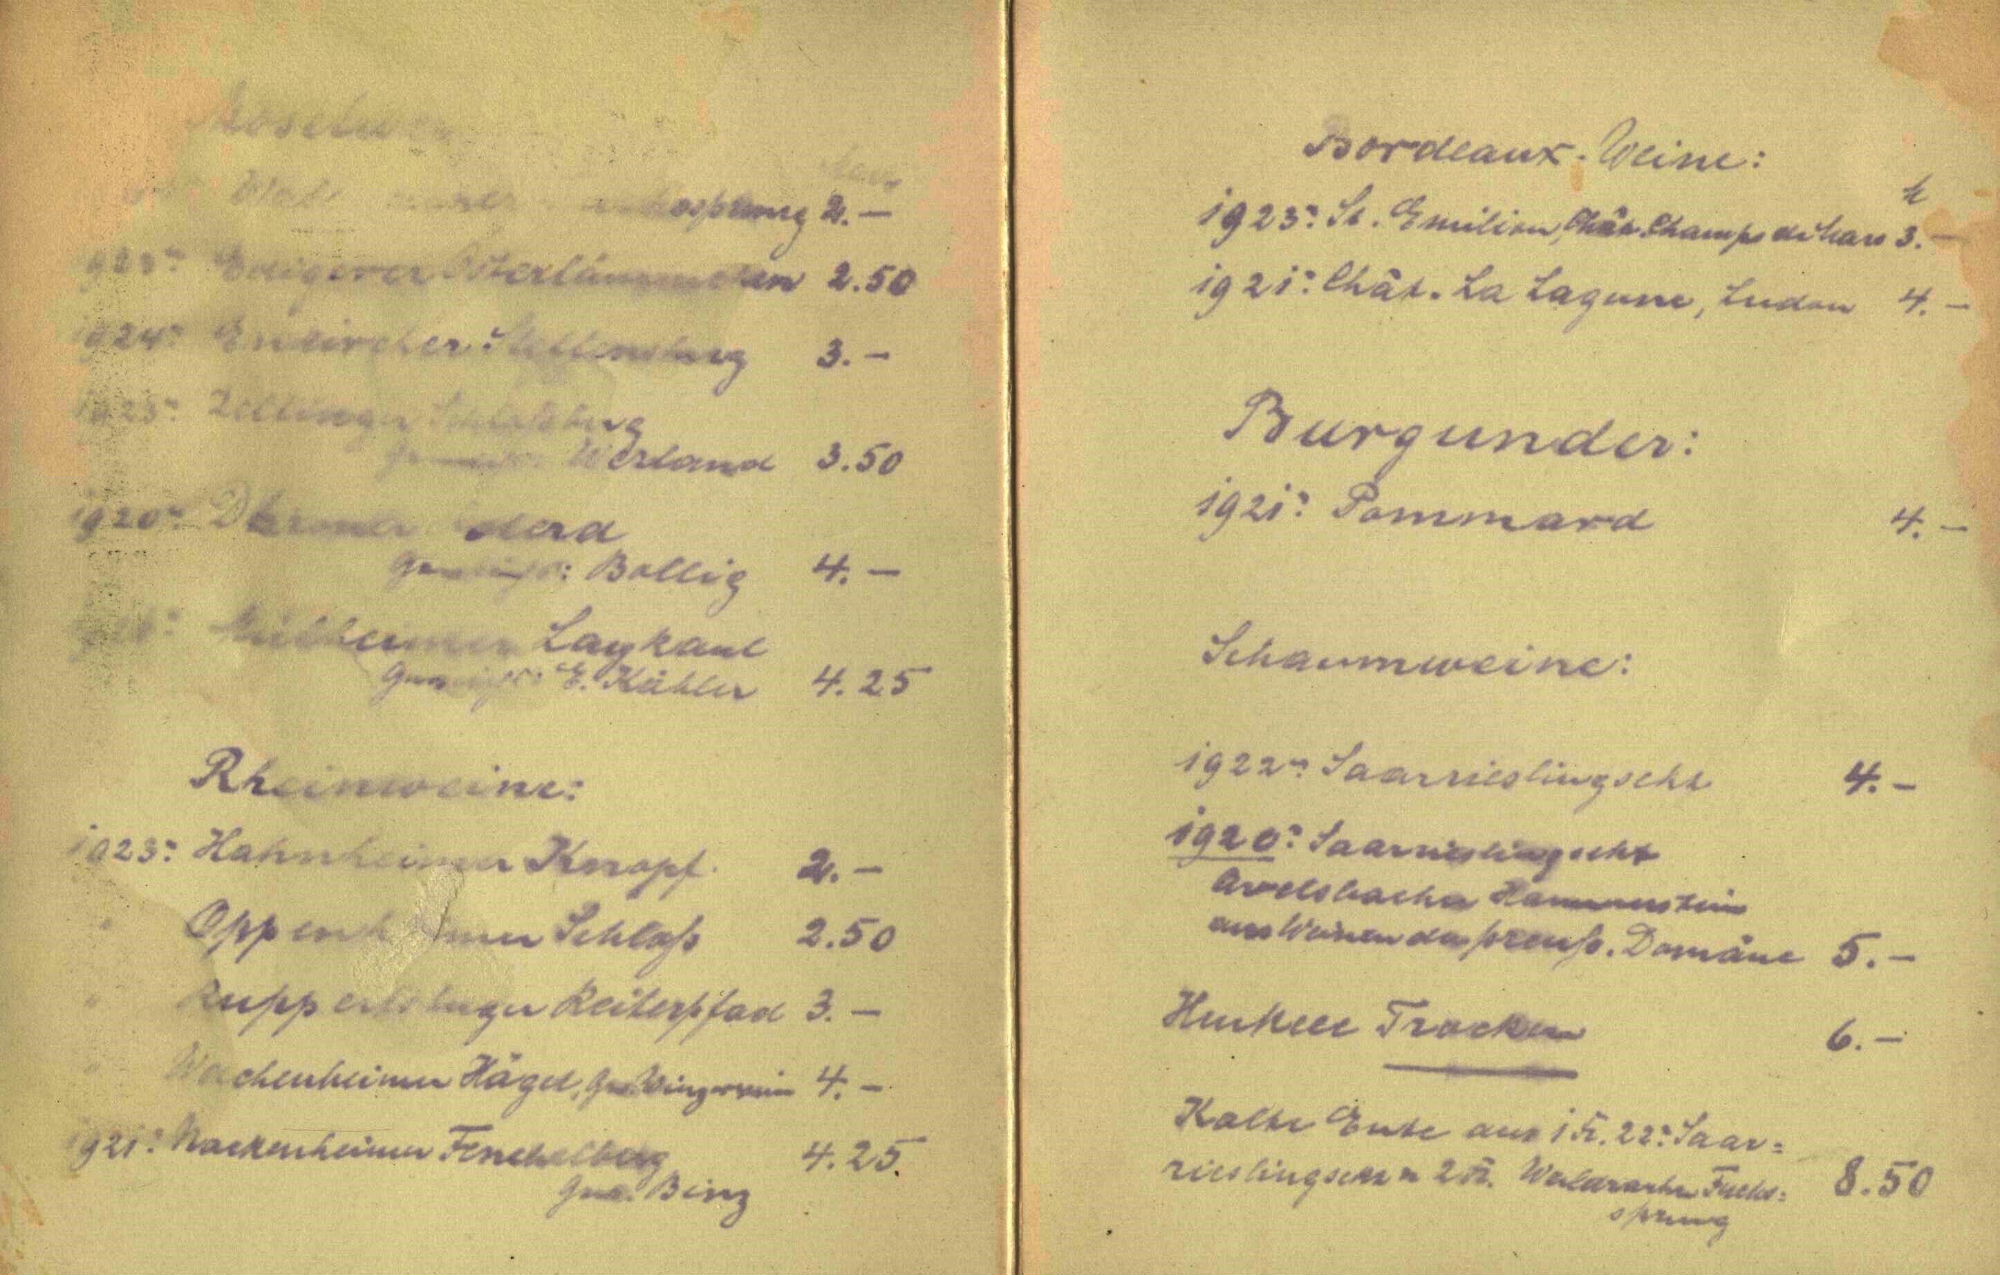 Moselweine
Mark
Wald ossprung 2.—
192 er Edigerer Osterlämmchen 2.50
1924er Enkircher Steffensberg 3.—
1923er Zeltinger Schlossberg
Gewächs: Werland 3.50
1920er Dhroner derd
Gewächs: Bollig 4.—
Mülheimer Laykaul
Gewächs: E. Kähler 4.25
Rheinweine:
1923er Hahnheimer Knopf. 2.—
" Oppenheimer Schloß 2.50
" Ruppertsberger Reiterpfad 3.—
" Wachenheimer Hägel, Gew. Winzerverein 4.—
1921er Nackenheimer Fenchelberg 4.25
Gew. Binz
Bordeaux-Weine:
M
1923er St. Emilion, Chât. Champs de Mars 3.—
1921er Chât. La Lagune, Ludon 4.—
Burgunder:
1921er Pommard 4.—
Schaumweine:
1922er Saarrieslingsekt 4.—
1920er Saarrieslingsekt
Avelsbacher Hammerstein
aus Weinen der preuß. Domäne 5.—
Henkell Trocken 6.—
Kalte Ente aus 1 Fl. 22er Saar=
rieslingsekt u 2 Fl. Waldracher Fuchs= 8.50
sprung